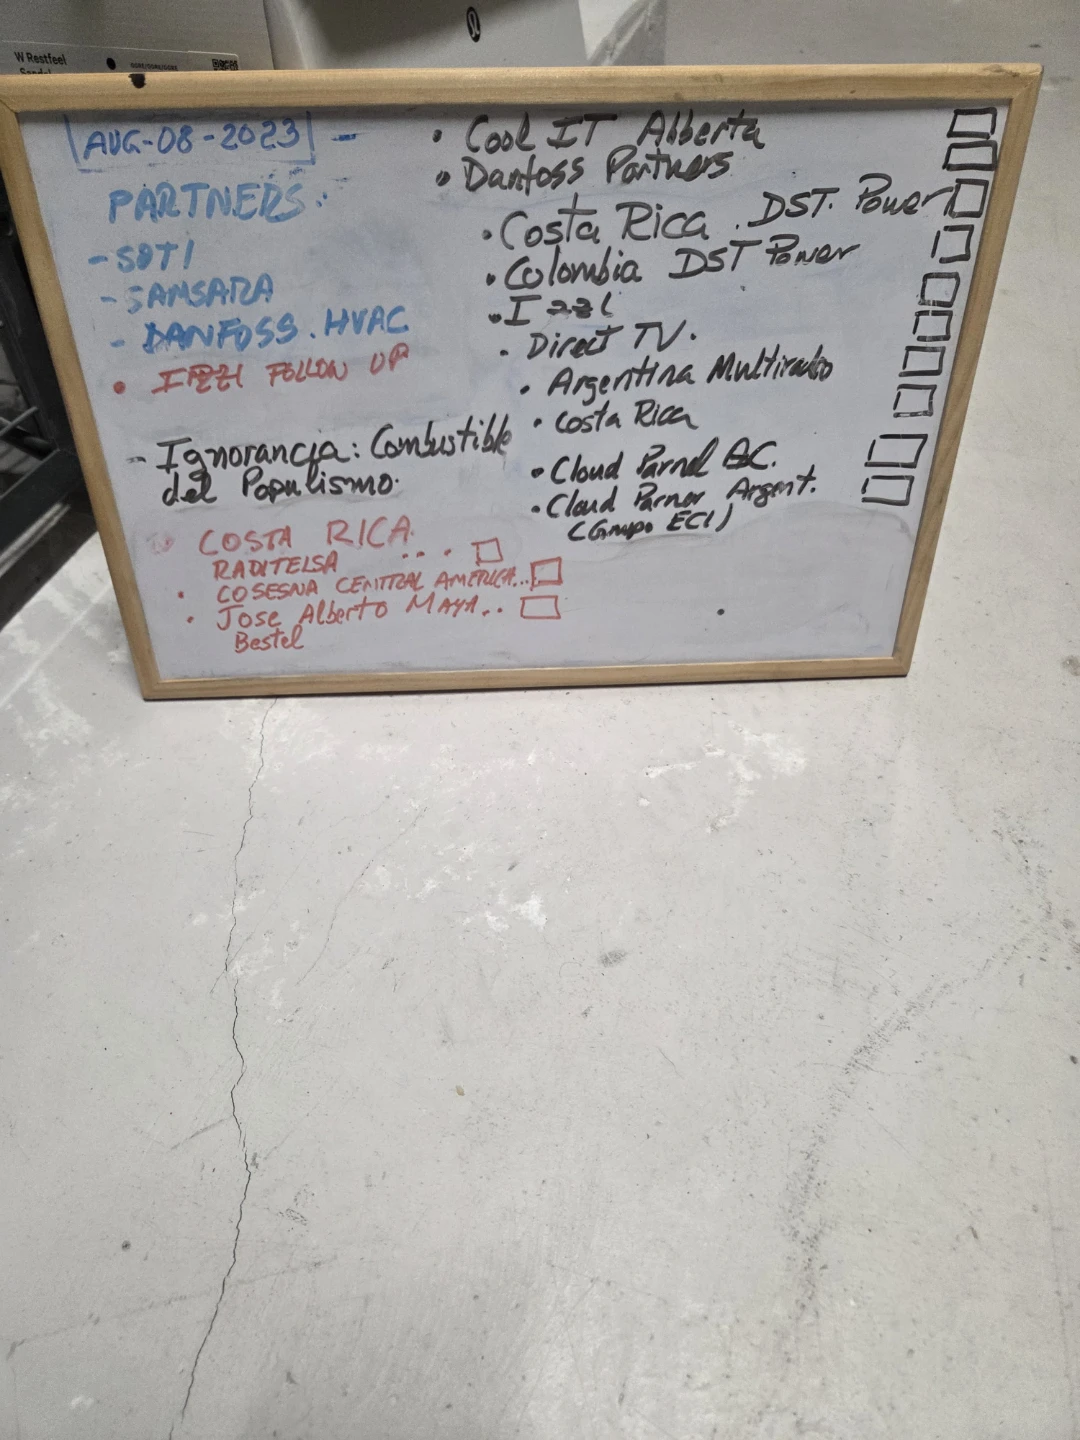 W Restfeel
AUG-08-2023 -
PARTNERS:
- SOTI
- SAMSARA
- DANFOSS. HVAC
• IZZI FOLLOW UP
- Ignorancia: Combustible
del Populismo.
COSTA RICA
RADITELSA ...
• COSESNA CENTRAL AMERICA...
• Jose Alberto MAYA..
Bestel
• Cool IT Alberta
• Danfoss Partners
• Costa Rica. DST. Power
• Colombia DST Power
• Izzi
• Direct TV.
• Argentina Multiradio
• Costa Rica
• Cloud Parnel
• Cloud Parner Argent.
(Grupo ECI)